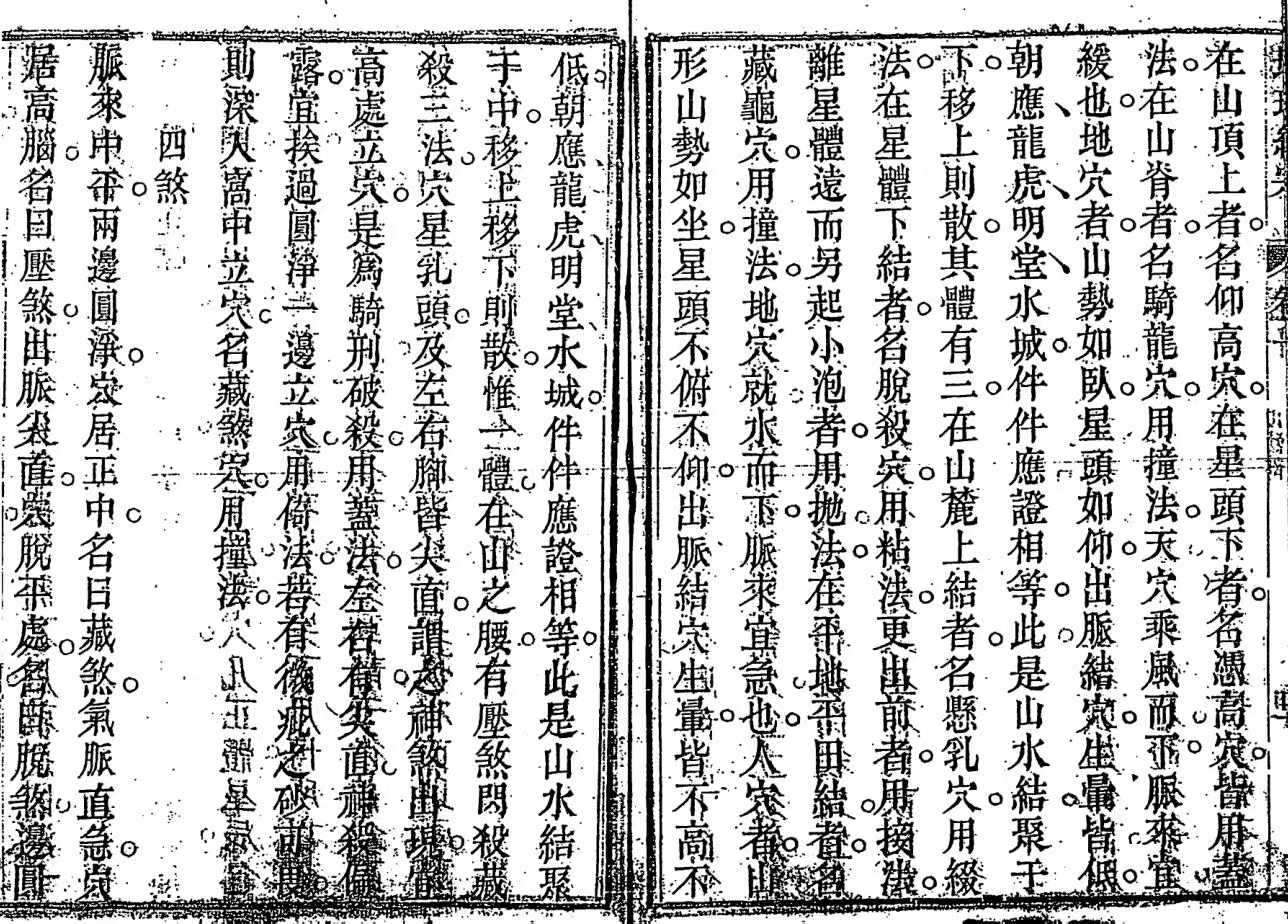 在山頂上者名仰高穴在星頭下者名憑高穴皆用蓋
法在山脊者名騎龍穴用撞法天穴乘風而下脈來宜
緩也地穴者山勢如臥星頭如仰出脈結穴生暈皆低
朝應龍虎明堂水城件件應證相等此是山水結聚于
下移上則散其體有三在山麓上結者名懸乳穴用綴
法在星體下結者名脫殺穴用粘法更出前者用接法
離星體遠而另起小泡者用拋法在平地平田結者名
藏龜穴用撞法地穴就水而下脈來宜急也人穴者山
形山勢如坐星頭不俯不仰出脈結穴生暈皆不高不
低朝應龍虎明堂水城件件應證相等此是山水結聚
于中移上移下則散惟一體在山之腰有壓煞閃殺藏
殺三法穴星乳頭及左右腳皆尖直謂之神煞出現
高處立穴是為騎刑破殺用蓋法左右有尖直神殺偏
露宜挨過圓淨一邊立穴用倚法若有微疵之破
則深入窩中立穴名藏煞穴用撞法
四煞
脈來中正兩邊圓淨穴居正中名曰藏煞氣脈直急穴
居高腦名曰壓煞出脈尖直穴脫平處名曰脫煞邊圓